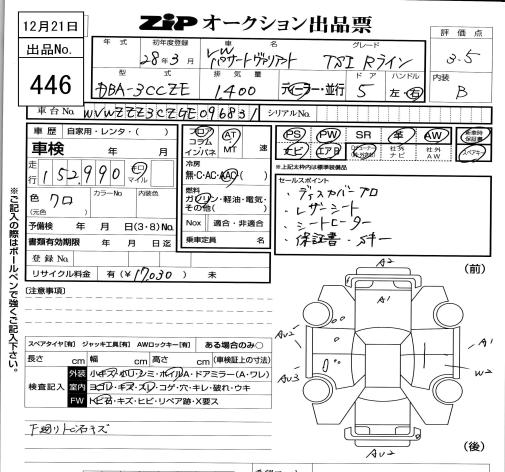 12月21日
出品No.
446
ZIP オークション出品票
評価点
3.5
内装
B
年式 初年度登録 車名 グレード
28年3 VW パサートヴァリアント TSI Rライン
型式 排気量 ドア ハンドル
DBA-3CCZE 1.400 ディーラー・並行 5 左・右
車台No. WVWZZZ3CZGE096831 シリアルNo.
車歴 自家用・レンタ・( )
車検 年 月
走行 152.990 キロ マイル
色 クロ (元色) カラーNo. 内装色
予備検 年 月 日(3・8)No.
書類有効期限 年 月 日迄
登録No.
リサイクル料金 有(¥17,030) 未
フロア コラム インパネ AT MT 速
冷房
無・C・AC・AAC( )
燃料
ガソリン・軽油・電気・その他( )
Nox 適合・非適合
乗車定員 名
PS PW SR 革 AW
ナビ エアB 社外ナビ 社外AW
新車時保証書
スペアキー
※上記太枠内は標準装備品
セールスポイント
・ディスカバープロ
・レザーシート
・シートヒーター
・保証書・スキー
※ご記入の際はボールペンで強くご記入下さい。
[注意事項]
スペアタイヤ[有] ジャッキ工具[有] AWロックキー[有] ある場合のみ○
長さ cm 幅 cm 高さ cm (車検証上の寸法)
検査記入
外装 小キズ・ホリ・シミ・ホイルA・ドアミラー(A・ワレ)
室内 ヨゴレ・キズ・スレ・コゲ・穴・キレ・破れ・ウキ
FW トビ石・キズ・ヒビ・リペア跡・X要ス
下廻りトビ石キズ
(前)
A2
A1
AU2
AU3
A1
W2
AU2
(後)